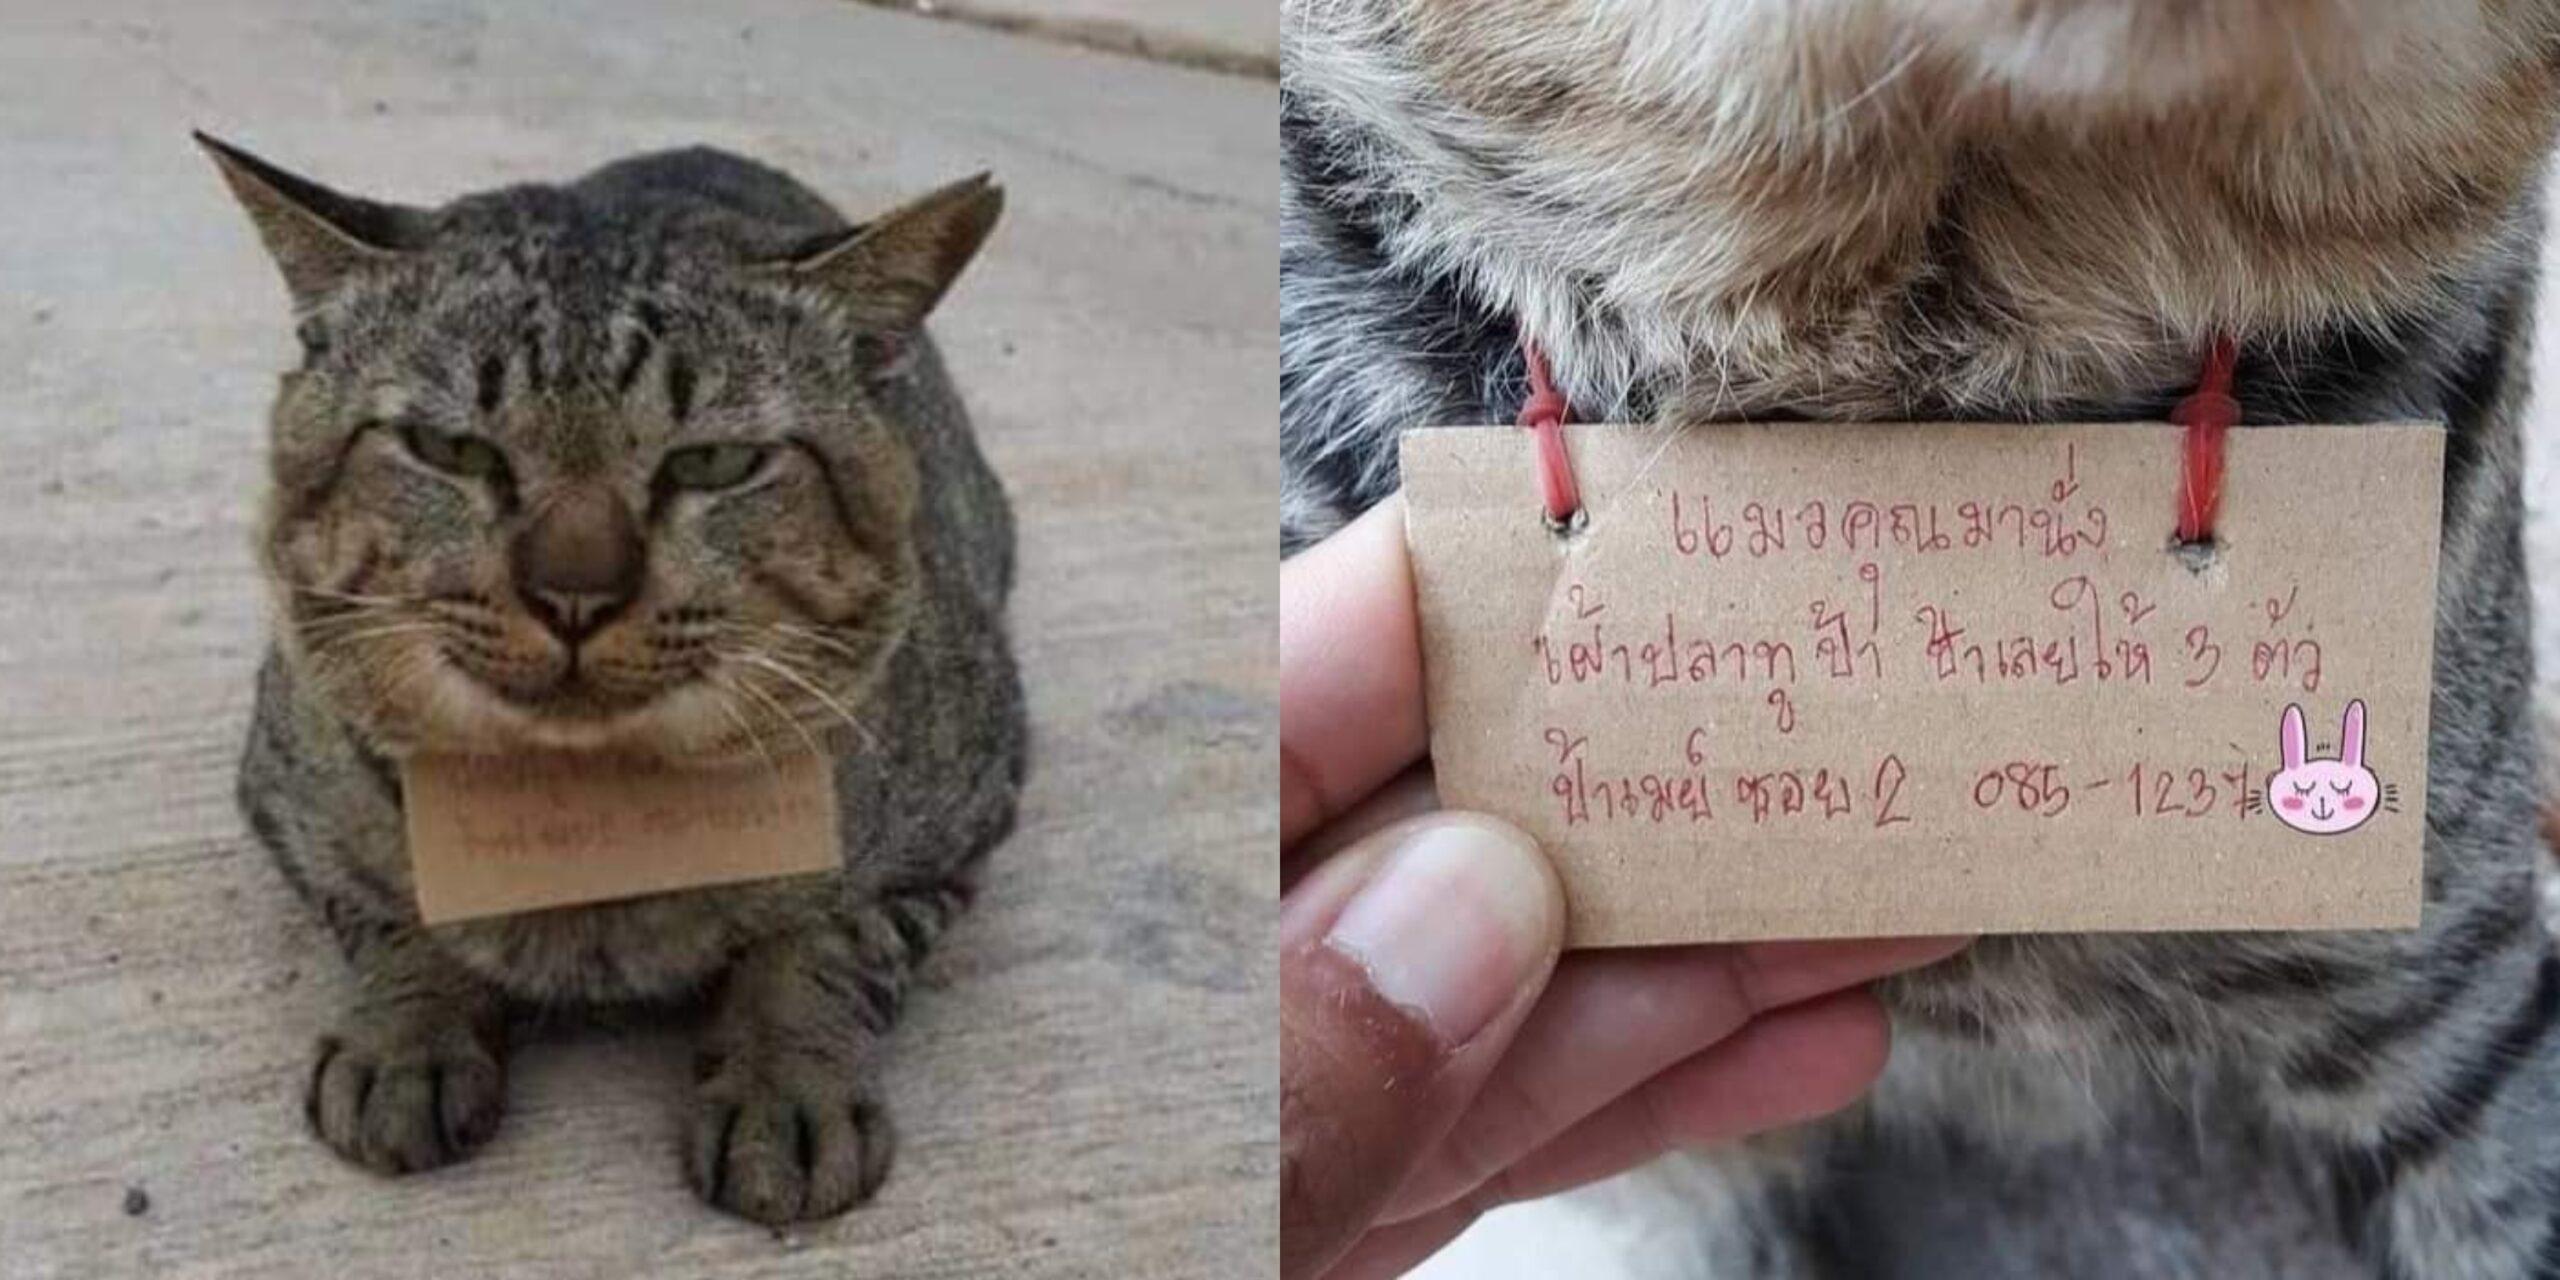 แมวคุณมานั่ง
เฝ้าปลาทูป้า ป้าเลยให้ 3 ตัว
ป้าเมย์ ซอย 2 085-1237